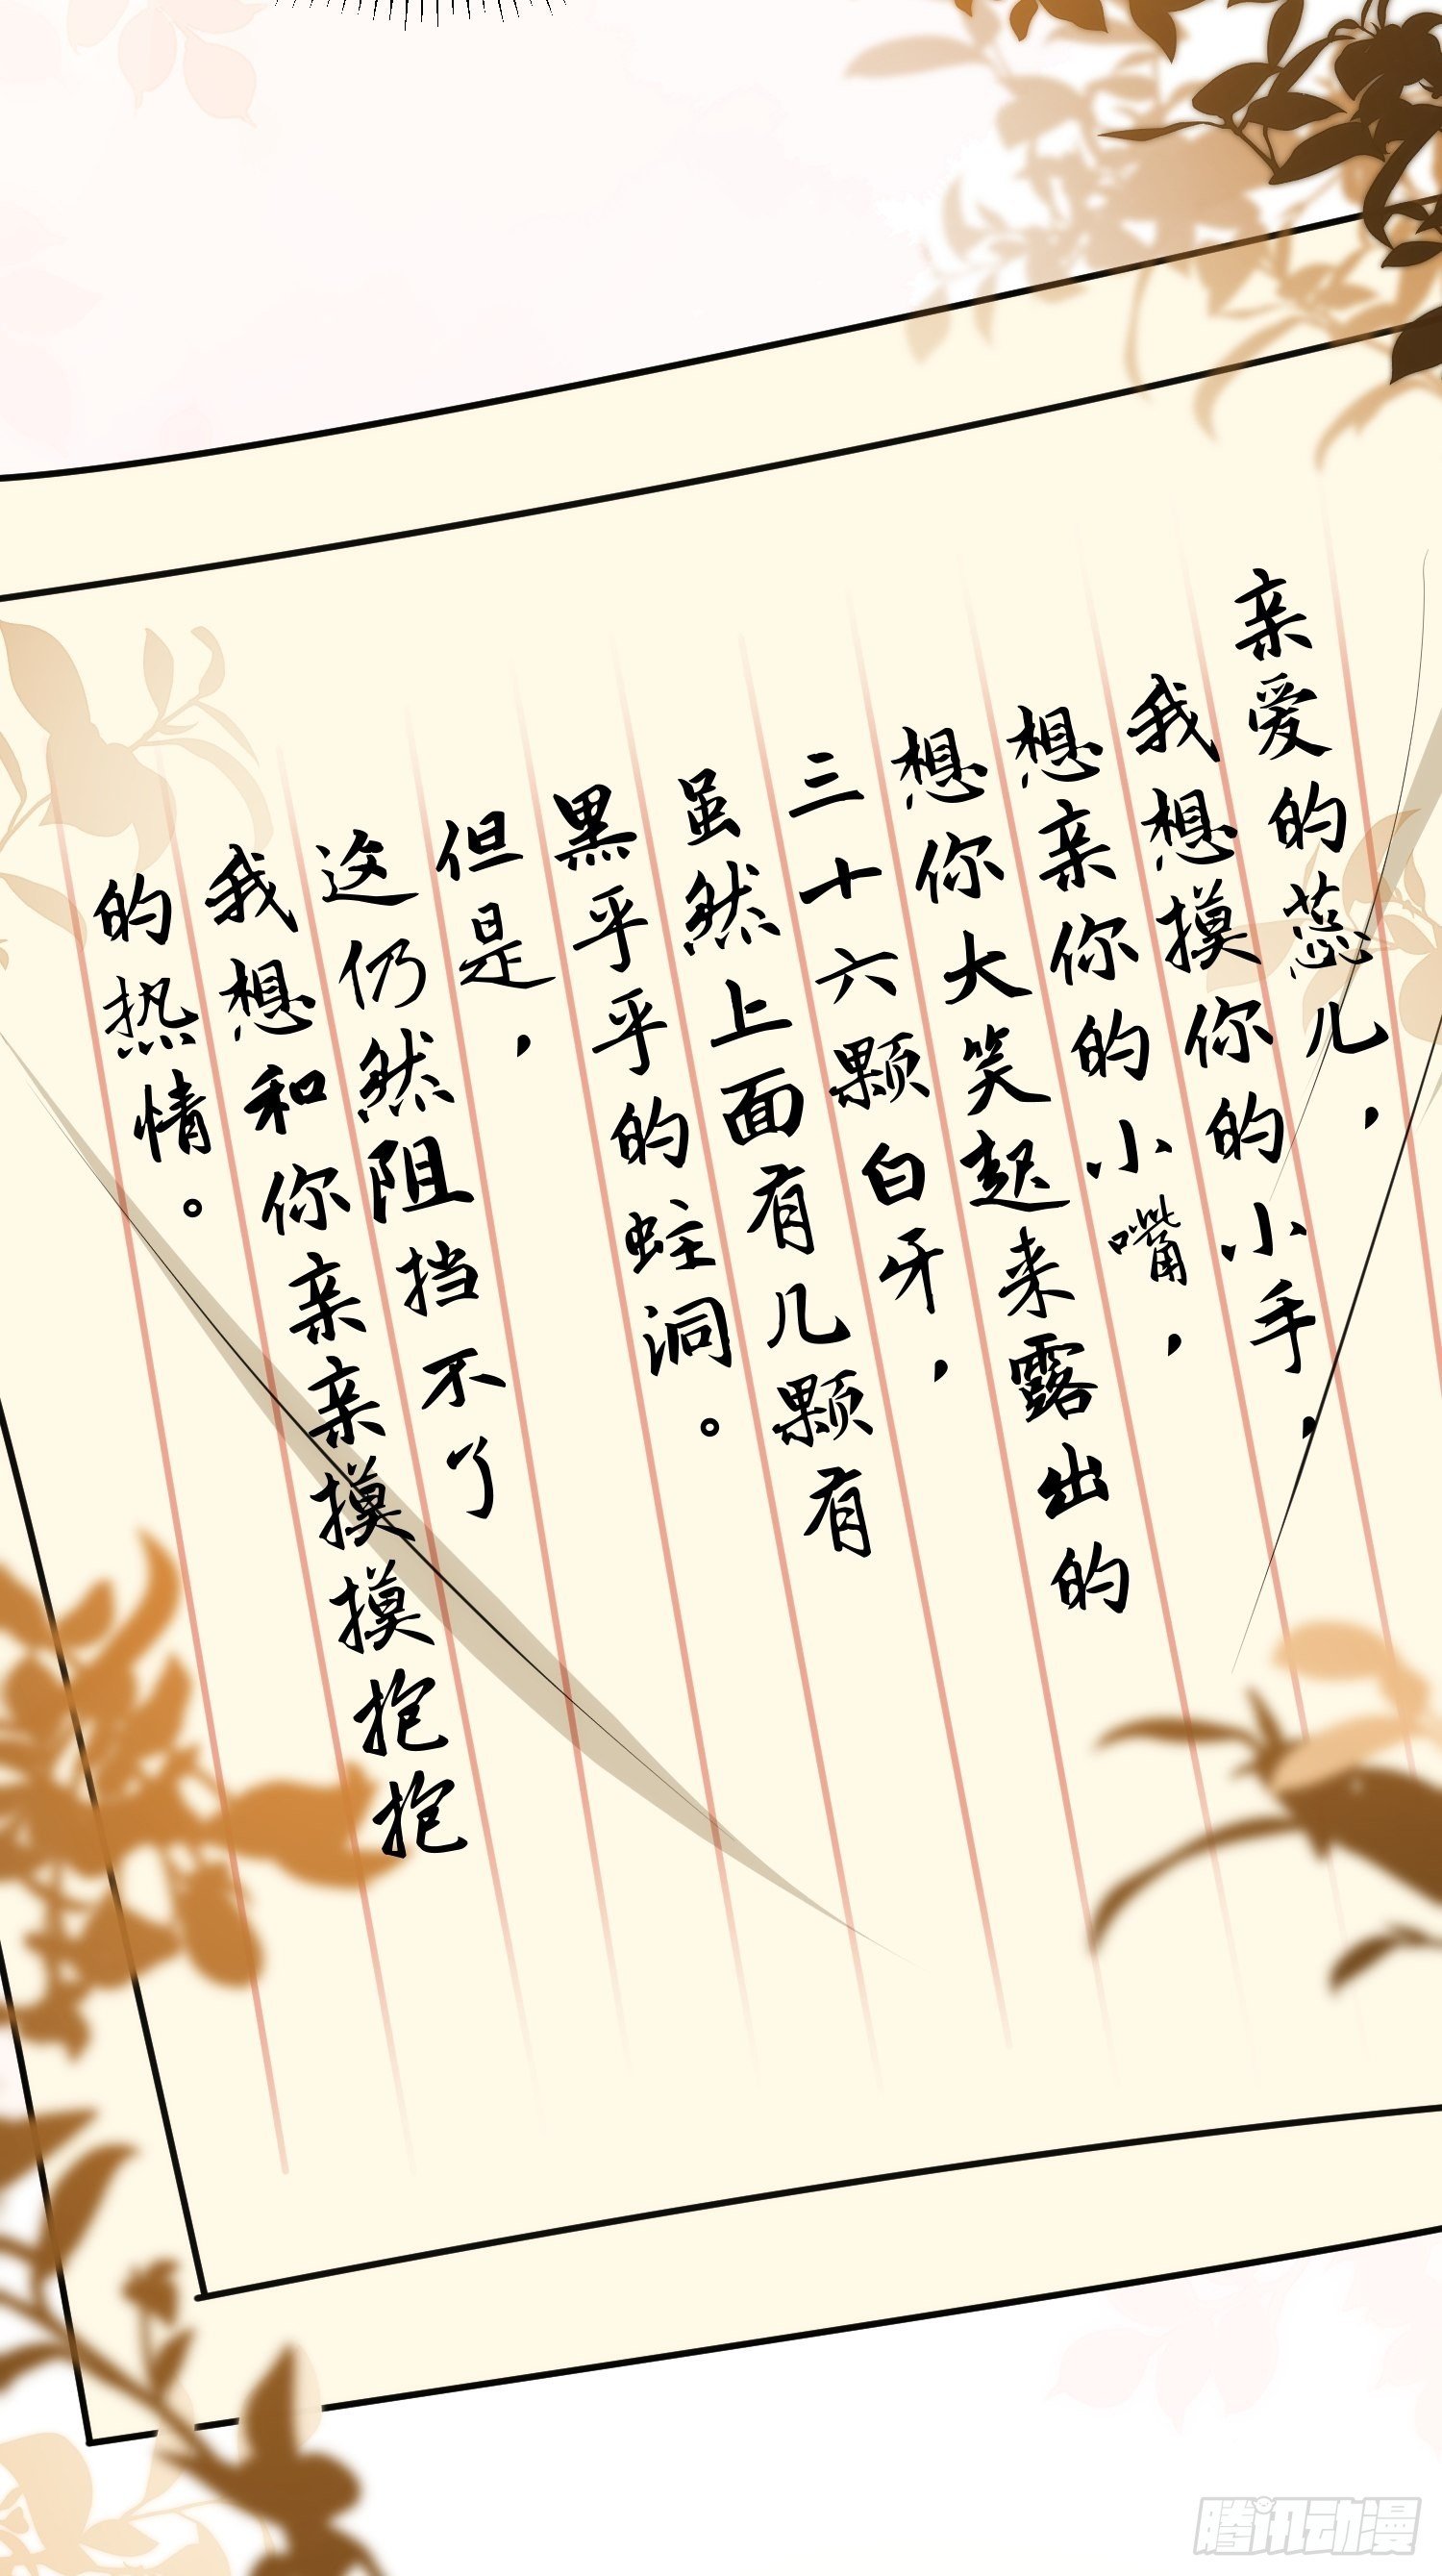 亲爱的蕊儿，
我想摸你的小手，
想亲你的小嘴，
想你大笑起来露出的
三十六颗白牙，
虽然上面有几颗有
黑乎乎的蛀洞。
但是，
这仍然阻挡不了
我想和你亲亲摸摸抱抱
的热情。
腾讯动漫